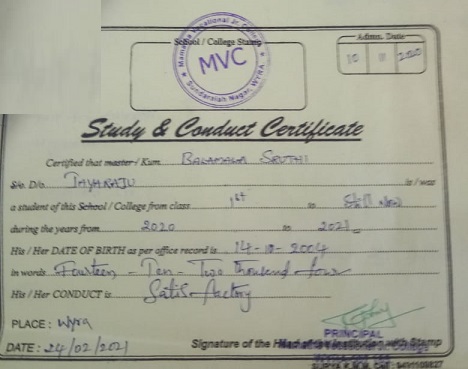 School / College Stamp
Mamatha Vocational Jr. College
MVC
Sundaraiah Nagar, WYRA
Admn. Date
10 11 2020
Study & Conduct Certificate
Certified that master / Kum. BALAMALA SRUTHI
S/o. D/o. is / was
a student of this School / College from class 1st to Still Now
during the years from 2020 to 2021
His / Her DATE OF BIRTH as per office record is 14-10-2004
in words Fourteen - Ten - Two thousand four
His / Her CONDUCT is Satisfactory
PLACE : Wyra
PRINCIPAL
Signature of the Head of the Institution with Stamp
DATE : 24/02/2021